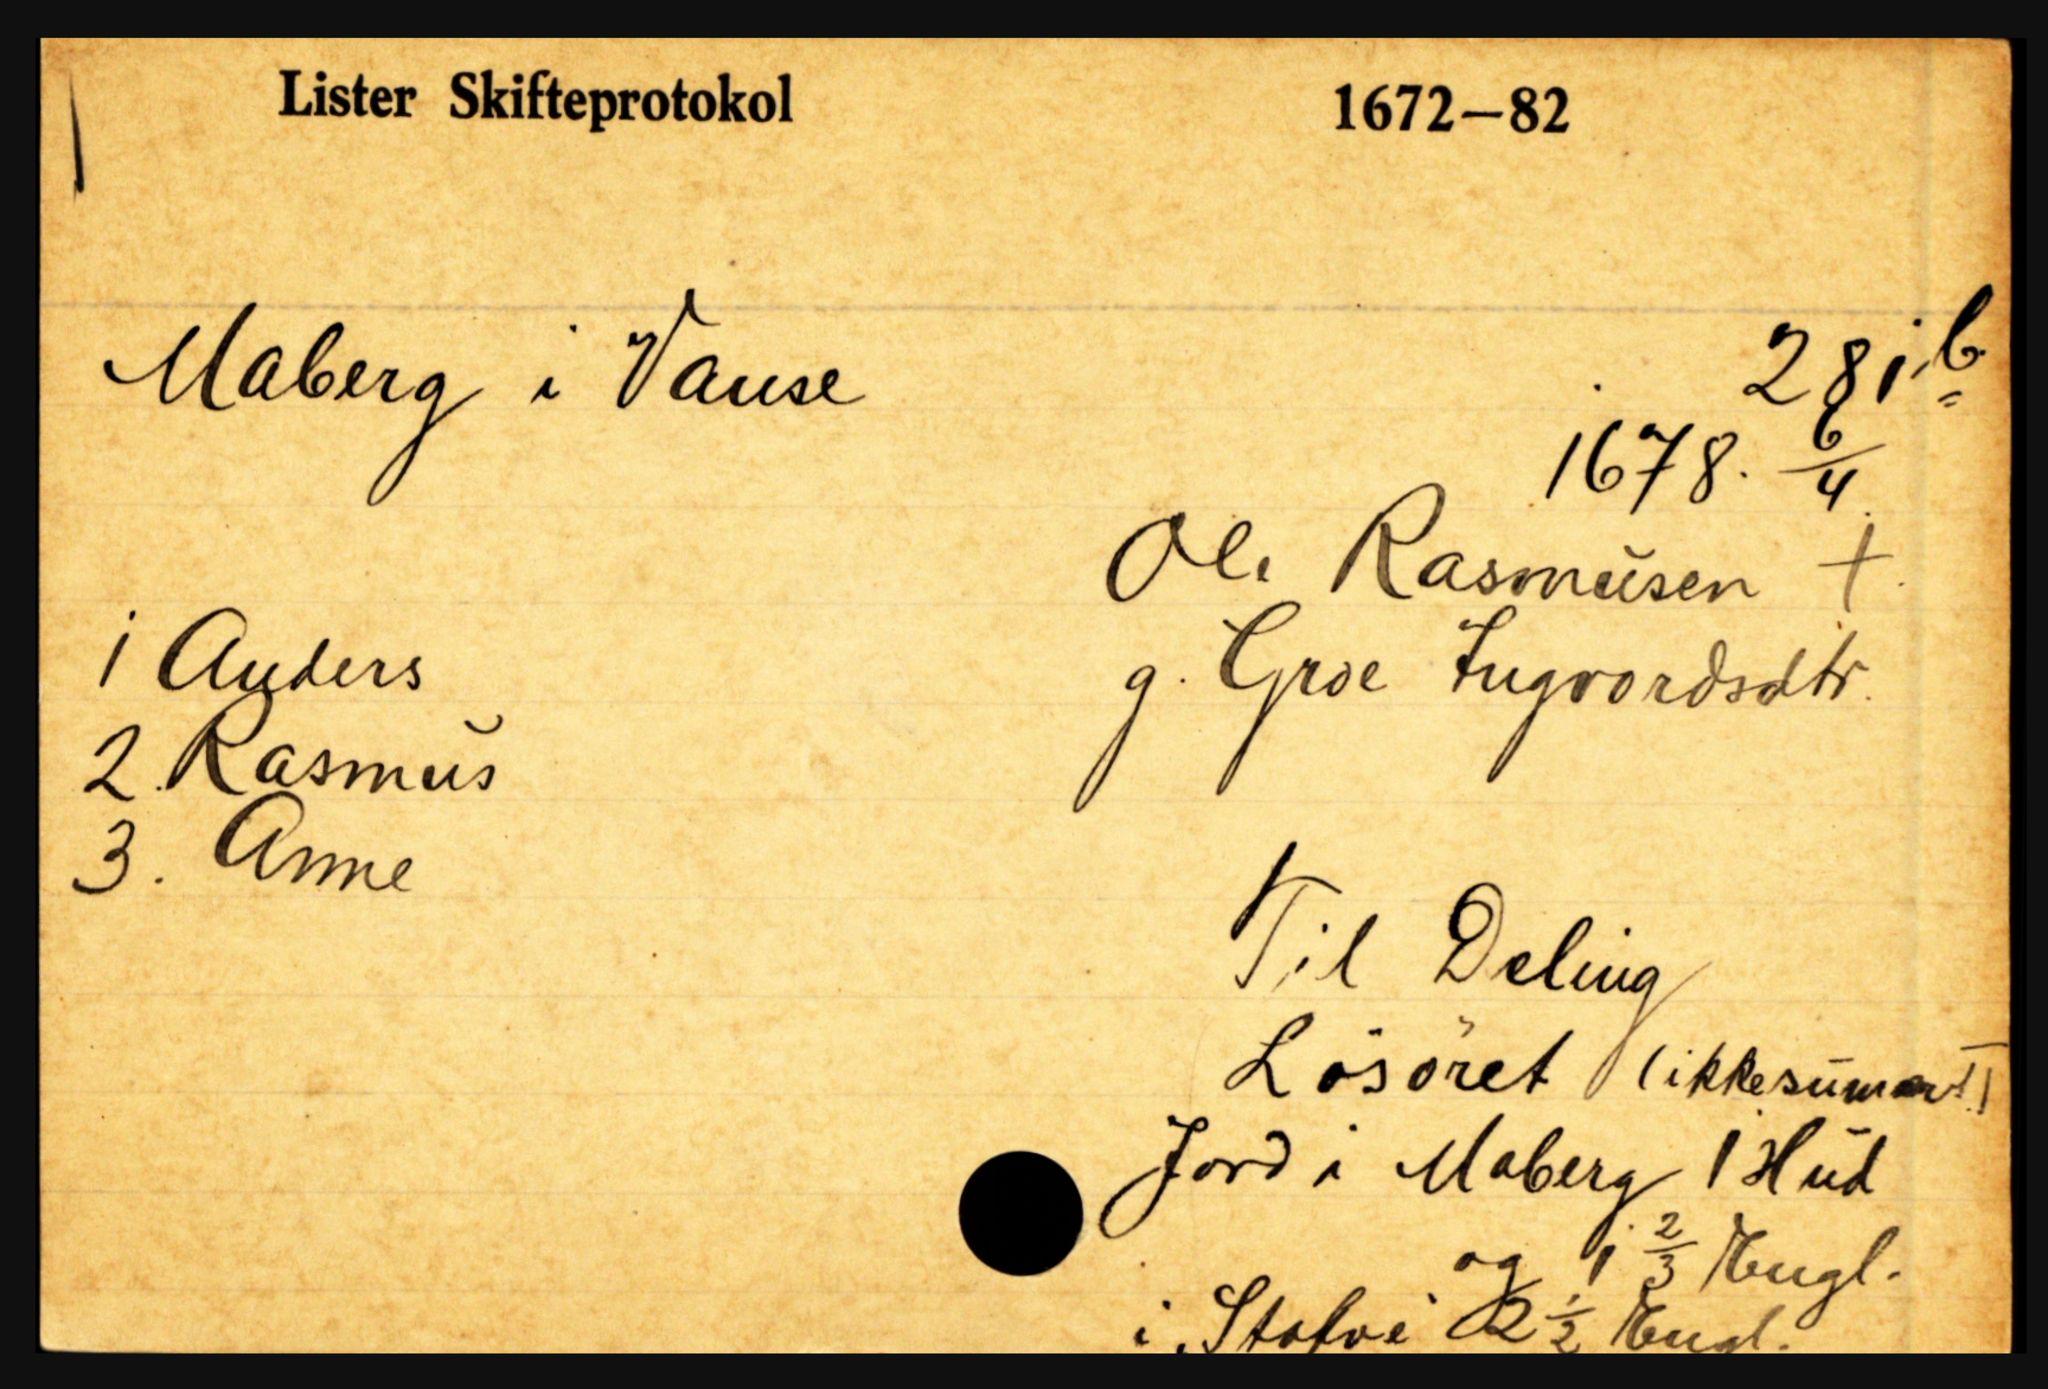 Lister Skifteprotokol 1672–82
Maberg i Vanse 281 b
1678. 6/4
Ole Rasmusen †
g. Groe Ingvordsdtr.
1 Anders
2. Rasmus
3. Anne
Til Deling
Lösöret (ikke sumert)
Jord i Maberg 1 Hud
og 1 2/3 Engl.
i 2 1/2 Engl.